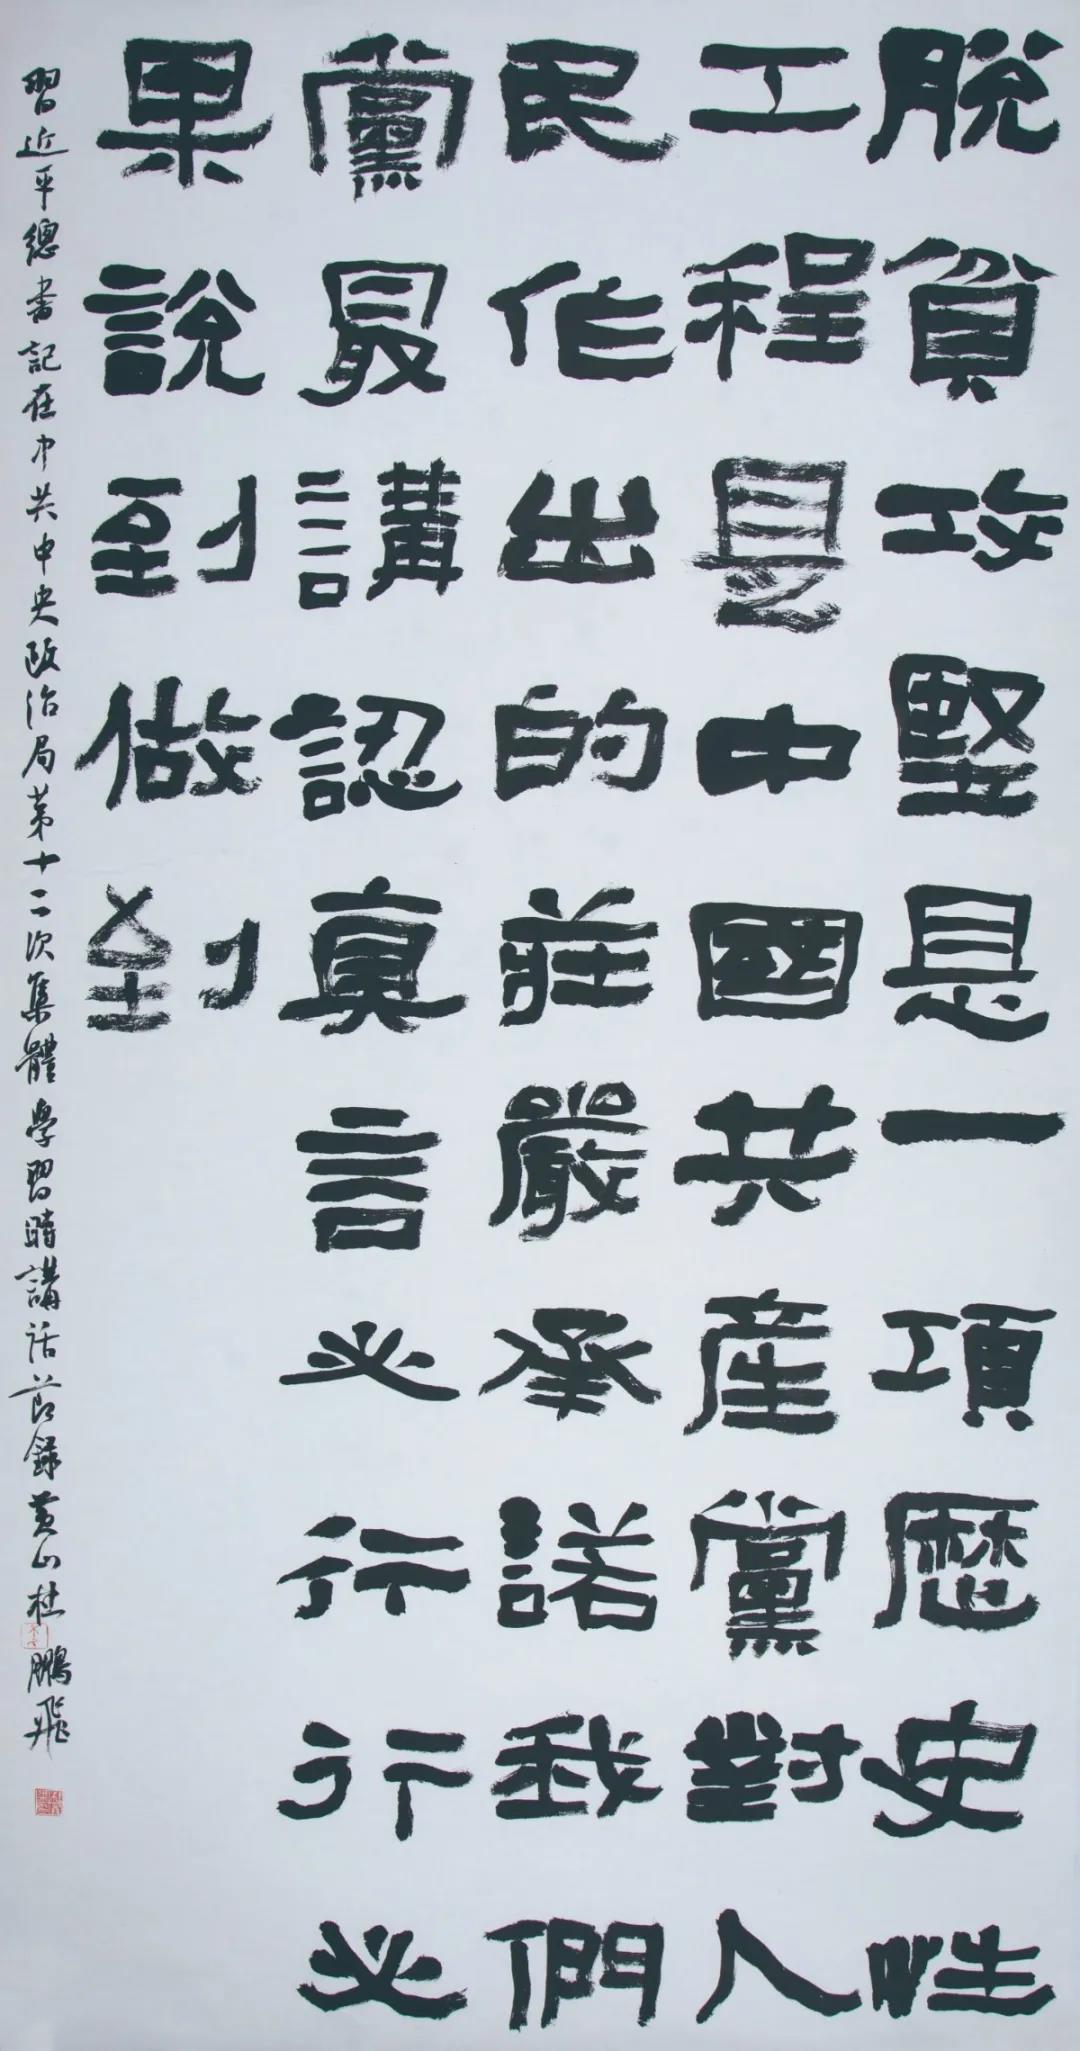 脫貧攻堅是一項歷史性
工程是中國共產黨對人
民作出的莊嚴承諾我們
黨最講認真言必行行必
果說到做到
習近平總書記在中共中央政治局第十二次集體學習時講話節錄黃山杜鵬飛